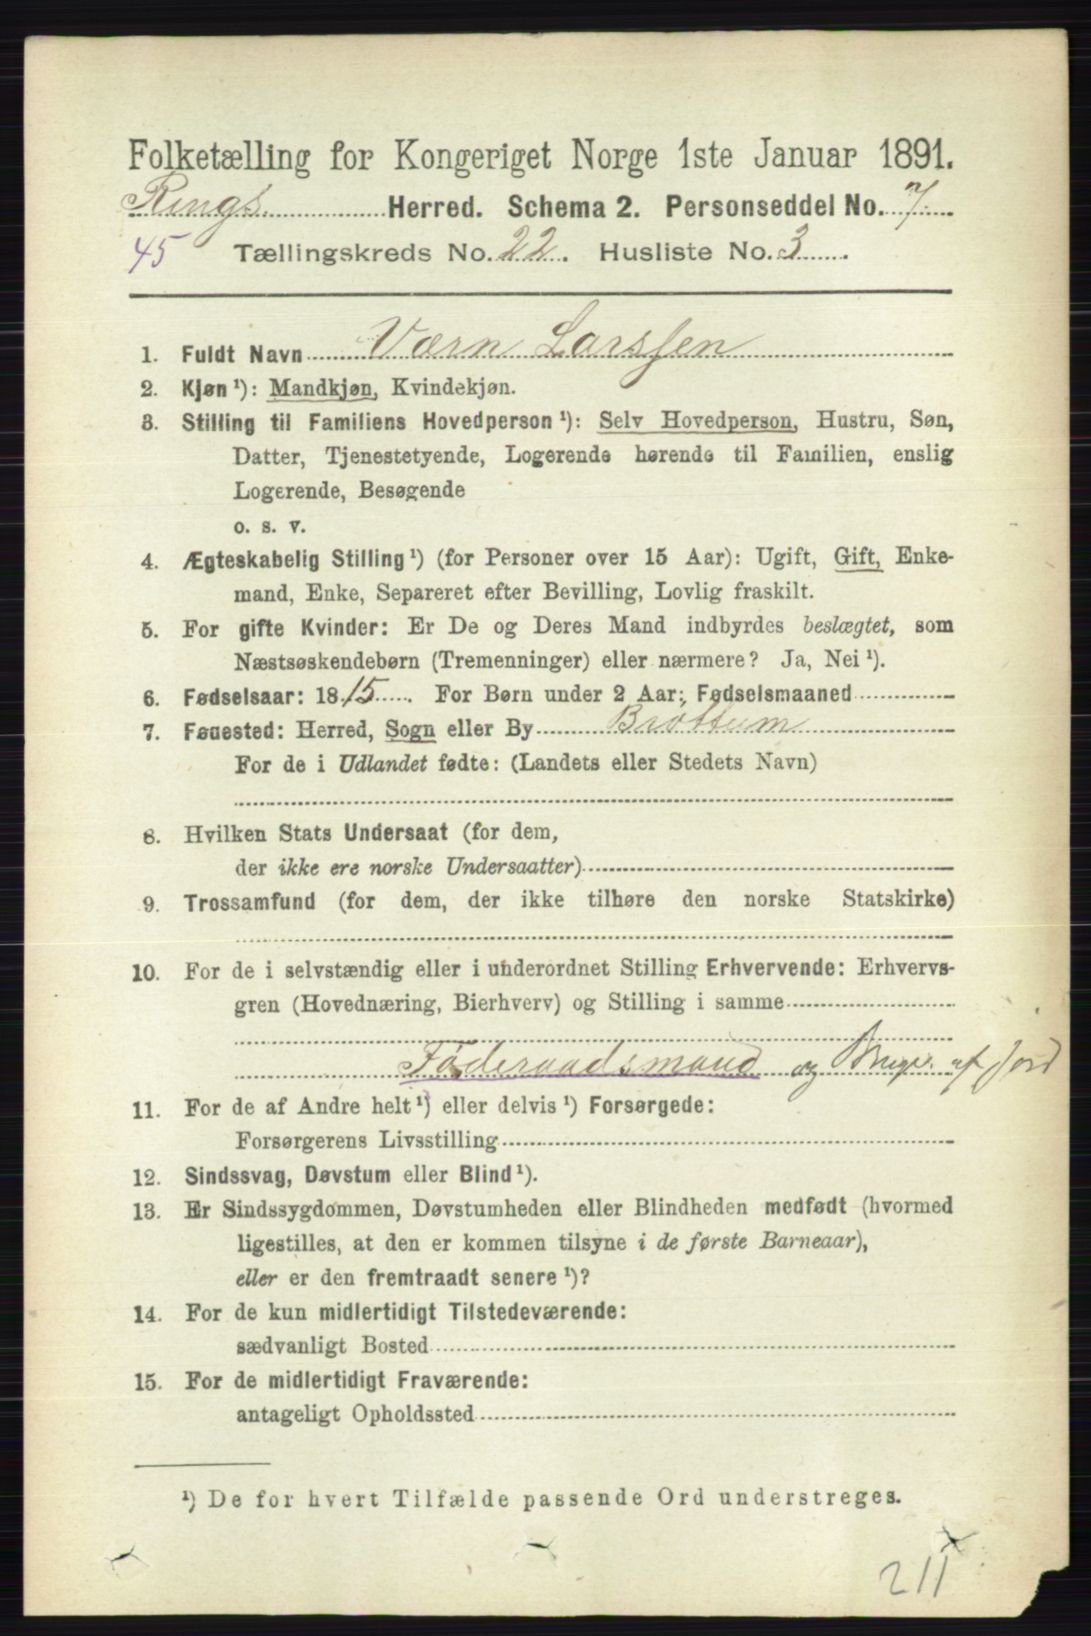 Folketælling for Kongeriget Norge 1ste Januar 1891.
Rings Herred. Schema 2. Personseddel No. 7.
45 Tællingskreds No. 22. Husliste No. 3
1. Fuldt Navn Værn Larssen
2. Kjøn ¹): Mandkjøn, Kvindekjøn.
3. Stilling til Familiens Hovedperson ¹): Selv Hovedperson, Hustru, Søn,
Datter, Tjenestetyende, Logerende hørende til Familien, enslig
Logerende, Besøgende
o. s. v.
4. Ægteskabelig Stilling ¹) (for Personer over 15 Aar): Ugift, Gift, Enke-
mand, Enke, Separeret efter Bevilling, Lovlig fraskilt.
5. For gifte Kvinder: Er De og Deres Mand indbyrdes beslægtet, som
Næstsøskendebørn (Tremenninger) eller nærmere? Ja, Nei ¹).
6. Fødselsaar: 1815. For Børn under 2 Aar: Fødselsmaaned
7. Fødested: Herred, Sogn eller By Brøttum
For de i Udlandet fødte: (Landets eller Stedets Navn)
8. Hvilken Stats Undersaat (for dem,
der ikke ere norske Undersaatter)
9. Trossamfund (for dem, der ikke tilhøre den norske Statskirke)
10. For de i selvstændig eller i underordnet Stilling Erhvervende: Erhvervs-
gren (Hovednæring, Bierhverv) og Stilling i samme
Føderaadsmand og Bruger af Jord
11. For de af Andre helt ¹) eller delvis ¹) Forsørgede:
Forsørgerens Livsstilling
12. Sindssvag, Døvstum eller Blind ¹).
13. Er Sindssygdommen, Døvstumheden eller Blindheden medfødt (hvormed
ligestilles, at den er kommen tilsyne i de første Barneaar),
eller er den fremtraadt senere ¹)?
14. For de kun midlertidigt Tilstedeværende:
sædvanligt Bosted
15. For de midlertidigt Fraværende:
antageligt Opholdssted
¹) De for hvert Tilfælde passende Ord understreges.
211